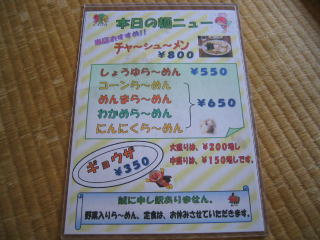 本日の麺ニュー
当店おすすめ!!
チャ～シュ～メン
￥800
しょうゆら～めん ￥550
コーンら～めん
めんまら～めん
￥650
わかめら～めん
にんにくら～めん
大盛りは、￥200増し
中盛りは、￥150増しです。
ギョウザ
￥350
誠に申し訳ありません。
野菜入りら～めん、定食は、お休みさせていただきます。